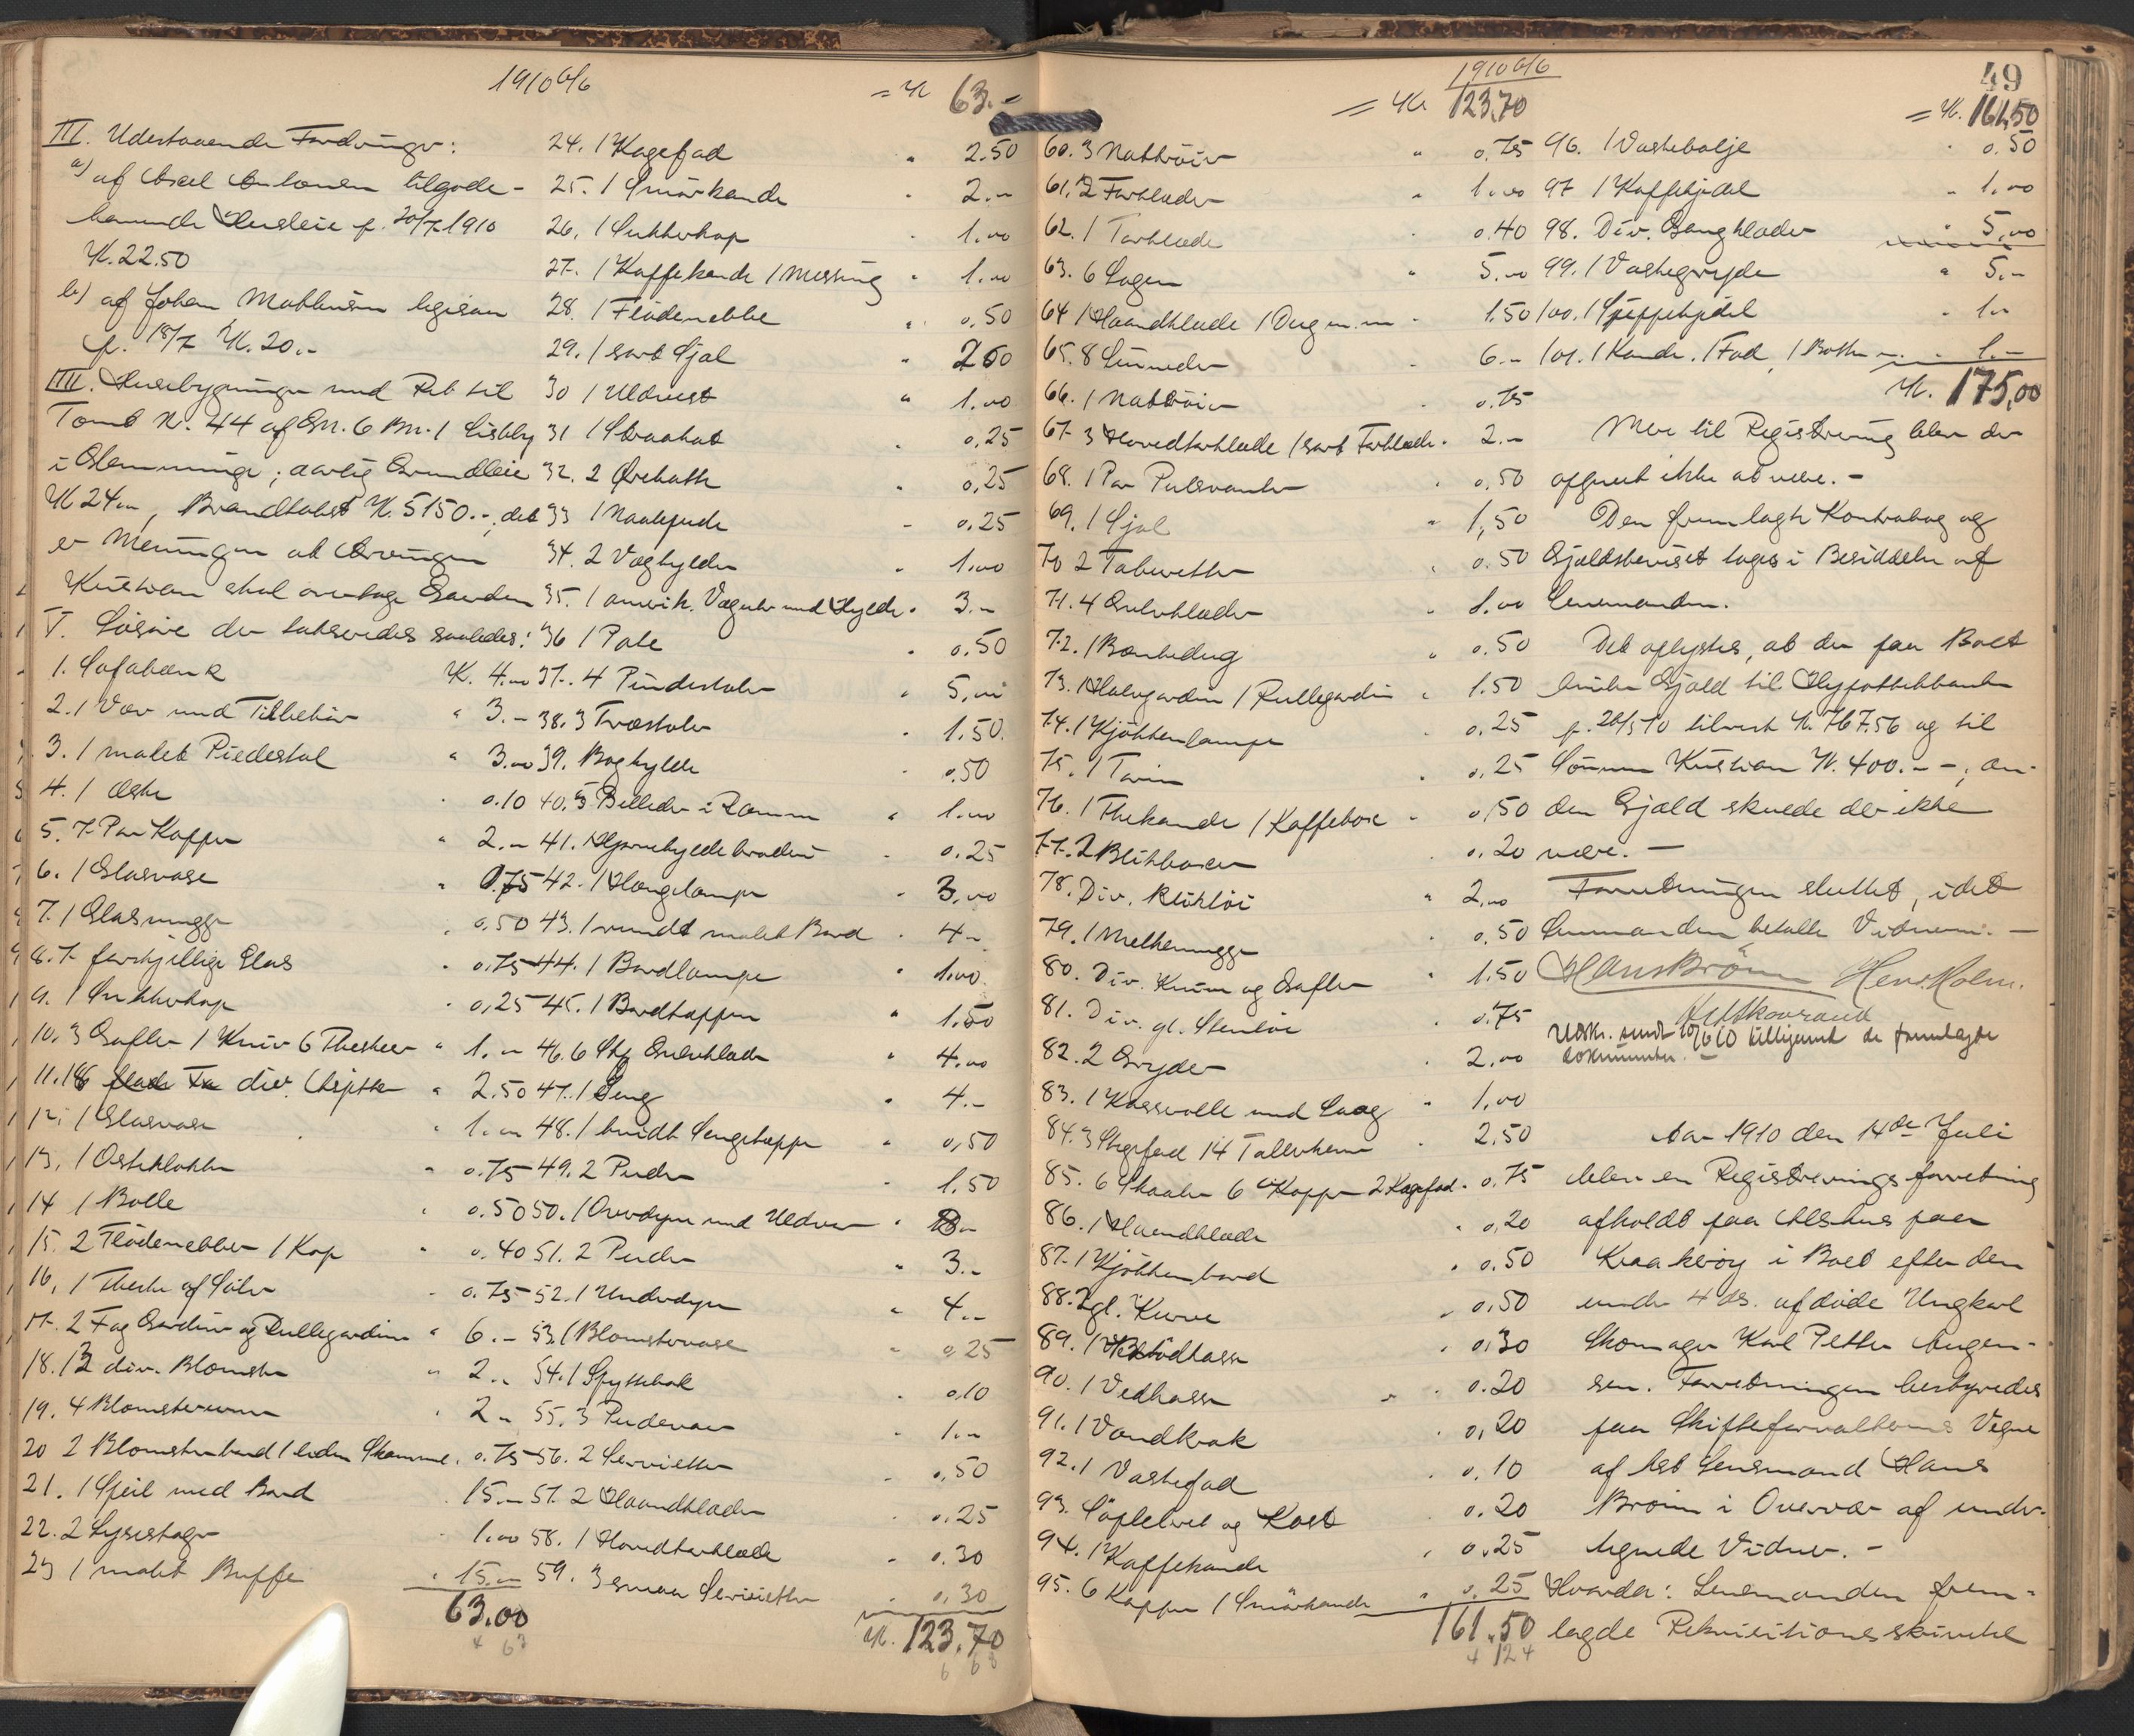 1910 6/6
= Kr 63.-
III. Udestaaende Fordringer:
a) af Axel Antonsen tilgode-
havende Husleie p. 20/7 1910
Kr. 22.50
b) af Johan Mathisen ligesaa
p. 18/7 Kr. 20.-
IIII. Husebygninger med Ret til
Tomt No. 44 af Gn. 6 Bn. 1 Lisleby
i Glemminge; aarlig Grundleie
Kr 24.00, Brandtakst Kr. 5150.-, det
er Meningen at Arvingen
Kristian skal overtage Gaarden
V. Lösöre der taxeredes saaledes:
1. Sofabænk Kr. 4.00
2. 1 Væv med Tilbehör " 3.-
3. 1 malet Piedestal " 3.00
4. 1 Æske " 0.10
5. 7 Par Kopper " 2.-
6. 1 Glasvase " 0.75
7. 1 Glasmugge " 0.50
8. 7 forskjellige Glas " 0.75
9. 1 Sukkerkop " 0,25
10. 3 Gafler 1 Kniv 6 Theskeer " 1.-
11. 16 div. Asjetter " 2.50
12. 1 Glasvase " 1.-
13. 1 Osteklokke " 0.75
14 1 Bolle " 0.50
15. 2 Flödenebber 1 Kop " 0.40
16. 1 Theske af Sölv " 0.75
17. 2 Fag Gardiner og Rullegardiner " 6.-
18. 13 div. Blomster " 2..
19. 4 Blomster " 2-
20 2 Blomsterbord 1 liden Skammel. 0.75
21. 1 Speil med Bord 15.-
22. 2 Lysestager 1.00
23 1 malet Buffe " 15.-
63.00
4 63
24. 1 Kagefad " 2.50
25. 1 Smörkande " 2.-
26. 1 Sukkerkop " 1.00
27. 1 Kaffekande 1 Messing " 1.00
28. 1 Flödenebbe " 0.50
29. 1 sort Sjal " 2.00
30 1 Uldvest " 1.00
31 1 Straahat " 0.25
32. 2 Ørehatte " 0,25
33 1 Naalepude " 0.25
34. 2 Væghylder " 1.00
35. 1 amerik. Vægur med Hylde " 3.-
36 1 Pale " 0.50
37. 4 Pindestoler " 5.00
38. 3 Træstoler " 1.50.
39. Boghylde " 0.50
40. 5 Billeder i Ramme " 1.00
41. 1 Hjørnehylde broderi " 0.25
42. 1 Hængelampe " 3,00
43. 1 rundt malet Bord " 4-
44. 1 Bordlampe " 1.00
45. 1 Bordtæppe " 1.50
46. 6 Stk Gulvklæder " 4.00
47. 1 Seng " 4.-
48. 1 hvidt Sengetæppe " 0,50
49. 2 Puder " 1.50
50. 1 Overdyne med Uldvar "
51. 2 Puder " 3.-
52. 1 Underdyne " 4.-
53. 1 Blomstervase " 0.25
54. 1 Spyttebak " 0.10
55. 3 Pudevar " 1.-
56. 2 Servietter " 0.50
57. 2 Haandklæder " 0.25
58. 1 Hovedtørklæde " 0.30
59. 3 smaa Servietter " 0.30
Kr. 123.70
6 68
1910 6/6
= Kr 123,70
49
= Kr. 161,50
60. 3 Nattröier " 0.75
61. 2 Forklæder " 1.00
62. 1 Torklæde " 0.40
63. 6 Lagen " 5.00
64 1 Haandklæde 1 Dug m.m " 1.50
65. 8 Linneder " 6.-
66. 1 Nattröie " 0.75
67. 3 Hovedtørklæde 1 sort Forklæde " 2.-
68. 1 Par Pulsvanter " 0.50
69. 1 Sjal " 1,50
70 2 Tabouretter " 0.50
71. 4 Gulvklæder " 1.00
72. 1 Bordedug " 0.50
73. 1 Halvgardin 1 Rullegardin " 1.50
74. 1 Kjökkenlampe " 0.25
75. 1 Terrin " 0.25
76. 1 Thekande 1 Kaffebox " 0,50
77. 2 Blikboxer " 0.20
78. Div. Bliktöi " 2,00
79. 1 Melkemugge " 0.50
80. Div. Kniver og Gafler " 1.50
81. Div. gl. Stentöi " 0.75
82. 2 Gryder " 2.00
83. 1 Kasserolle med Laag " 1.00
84. 3 Stegefad 14 Tallerkener " 2.50
85. 6 Skaaler 6 Kopper 2 Kagefad " 0.75
86. 1 Haandklæde " 0,20
87. 1 Kjökkenbord " 0.50
88. 2 gl. Kurve " 0,50
89. 1 " 0,30
90. 1 Vedkasse " 0.20
91. 1 Vandkrak " 0,20
92. 1 Vaskefad " 0.10
93. Söplebret og Kost " 0.20
94. 1 Kaffekande " 0.25
95. 6 Kopper 1 Smörkande " 0.25
161.50
4 124
96. 1 Vaskebalje " 0.50
97 1 Kaffekjedel " 1.00
98. Div. Gangklæder " 5,00
99. 1 Vaskegryde " 5.-
100. 1 Suppekjedel " 1.-
101. 1 Kande, 1 Fad, 1 Bøtte " 1.-
Kr. 175,00
Mere til Registrering blev der
opgivet ikke at være. -
Den fremlagte Kontrabog og
Gjeldsbeviset toges i Besiddelse af
Lensmanden.
Det oplystes, at der paa Boet
hviler Gjæld til Hypothekbanken
p. 26/5 10 tilrest Kr. 767.56 og til
Sönnen Kristian Kr. 400.- -; an-
den Gjæld skulde der ikke
være. -
Forretningen sluttet, idet
Lensmanden betalte Vidnerne. -
Hans Bröin Henr. Holm.
Udskr. sendt 10/6 10 tilligemed de fremlagte
dokumenter. -
Aar 1910 den 14de Juli
blev en Registreringsforretning
afholdt paa Alshus paa
Kraakeröy i Boet efter den
under 4 ds. afdöde Ungkarl
Skomager Karl Petter Jörgen-
sen. Forretningen bestyredes
paa Skifteforvalterens Vegne
af Ast Lensmand Hans
Bröin i Overvær af under-
tegnede Vidner. -
Hvorda: Lensmanden frem-
lagde Rekvisitionsskrivelse